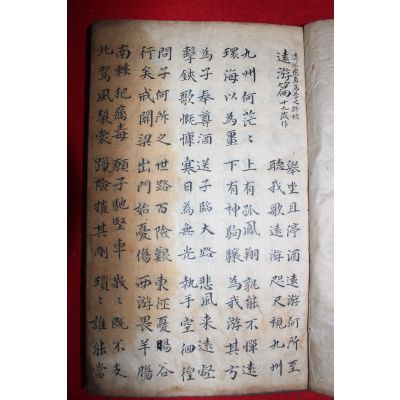 遠游篇 十七歲作
擧坐且停酒
聽我歌遠游
遠游何所至
咫尺視九州
九州何茫〻
環海以爲畺
上有孤鳳翔
下有神駒驤
孰能不憚遠
爲我游其方
爲子奉尊酒
擊鋏歌慨慷
送子臨大路
寒日爲無光
悲風來遠壑
執手空徊徨
問子何所之
行矣戒開梁
世路百險艱
出門始憂傷
東征憂暘谷
西游畏羊膓
南棘犯瘴毒
北駕風裂裳
願子馳堅車
躐險摧其剛
峩〻既不支
瑣〻誰能當